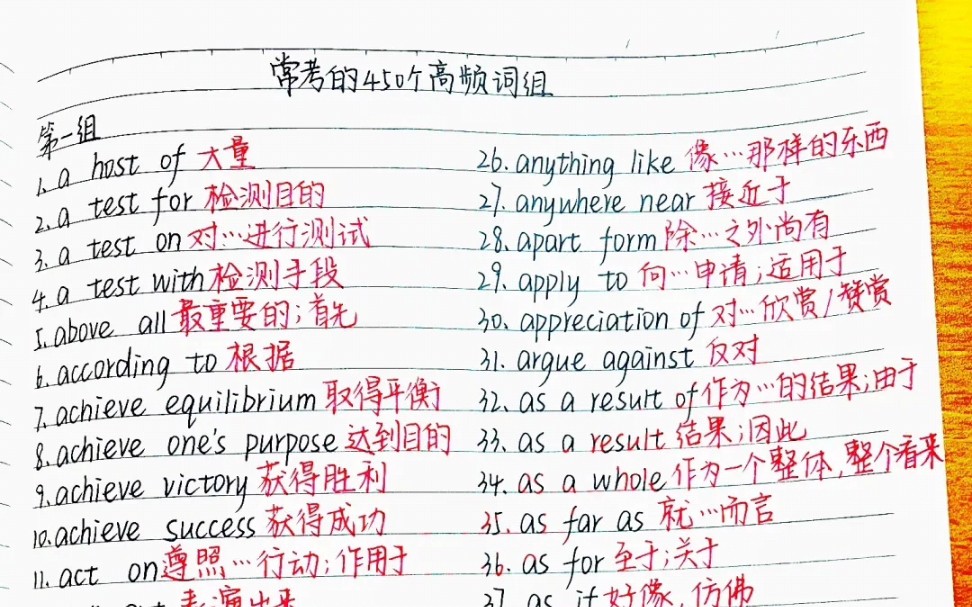 常考的450个高频词组
第一组
1. a host of 大量
2. a test for 检测目的
3. a test on 对…进行测试
4. a test with 检测手段
5. above all 最重要的;首先
6. according to 根据
7. achieve equilibrium 取得平衡
8. achieve one's purpose 达到目的
9. achieve victory 获得胜利
10. achieve success 获得成功
11. act on 遵照…行动;作用于
表演出来
26. anything like 像…那样的东西
27. anywhere near 接近于
28. apart form 除…之外尚有
29. apply to 向…申请;适用于
30. appreciation of 对…欣赏/赞赏
31. argue against 反对
32. as a result of 作为…的结果;由于
33. as a result 结果;因此
34. as a whole 作为一个整体,整个看来
35. as far as 就…而言
36. as for 至于;关于
37. as if 好像,仿佛